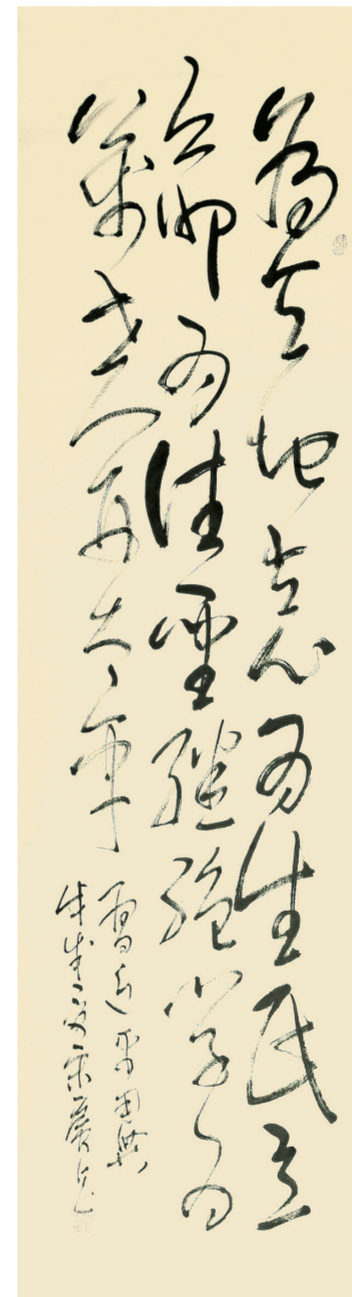 為天地立心為生民立
命為往聖繼絕學為
萬世開太平